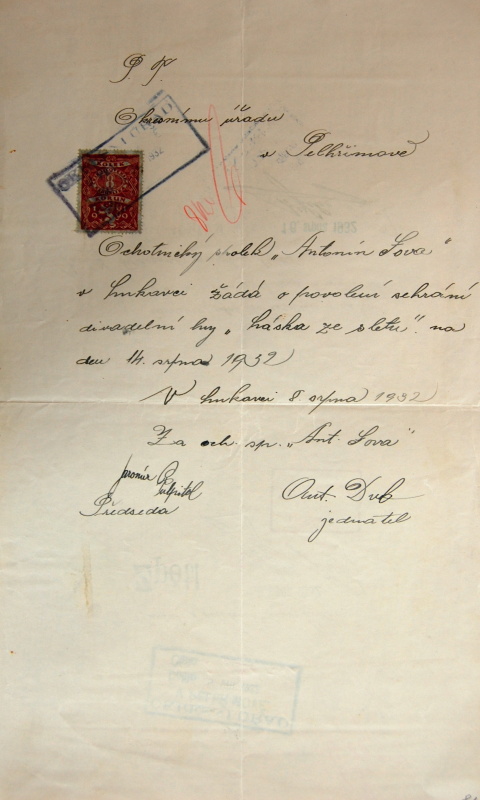 P. T.
Okresnímu úřadu
v Pelhřimově
OKRESNÍ ÚŘAD
1932
KOLEK
KORUN
5
1932
Ochotnický spolek „Antonín Sova"
v Lukavci žádá o povolení sehrání
divadelní hry „Láska ze sletu". na
den 14. srpna 1932
V Lukavci 8 srpna 1932
Za och. sp. „Ant. Sova"
Jaromír
Předseda
Ant. Dub
jednatel